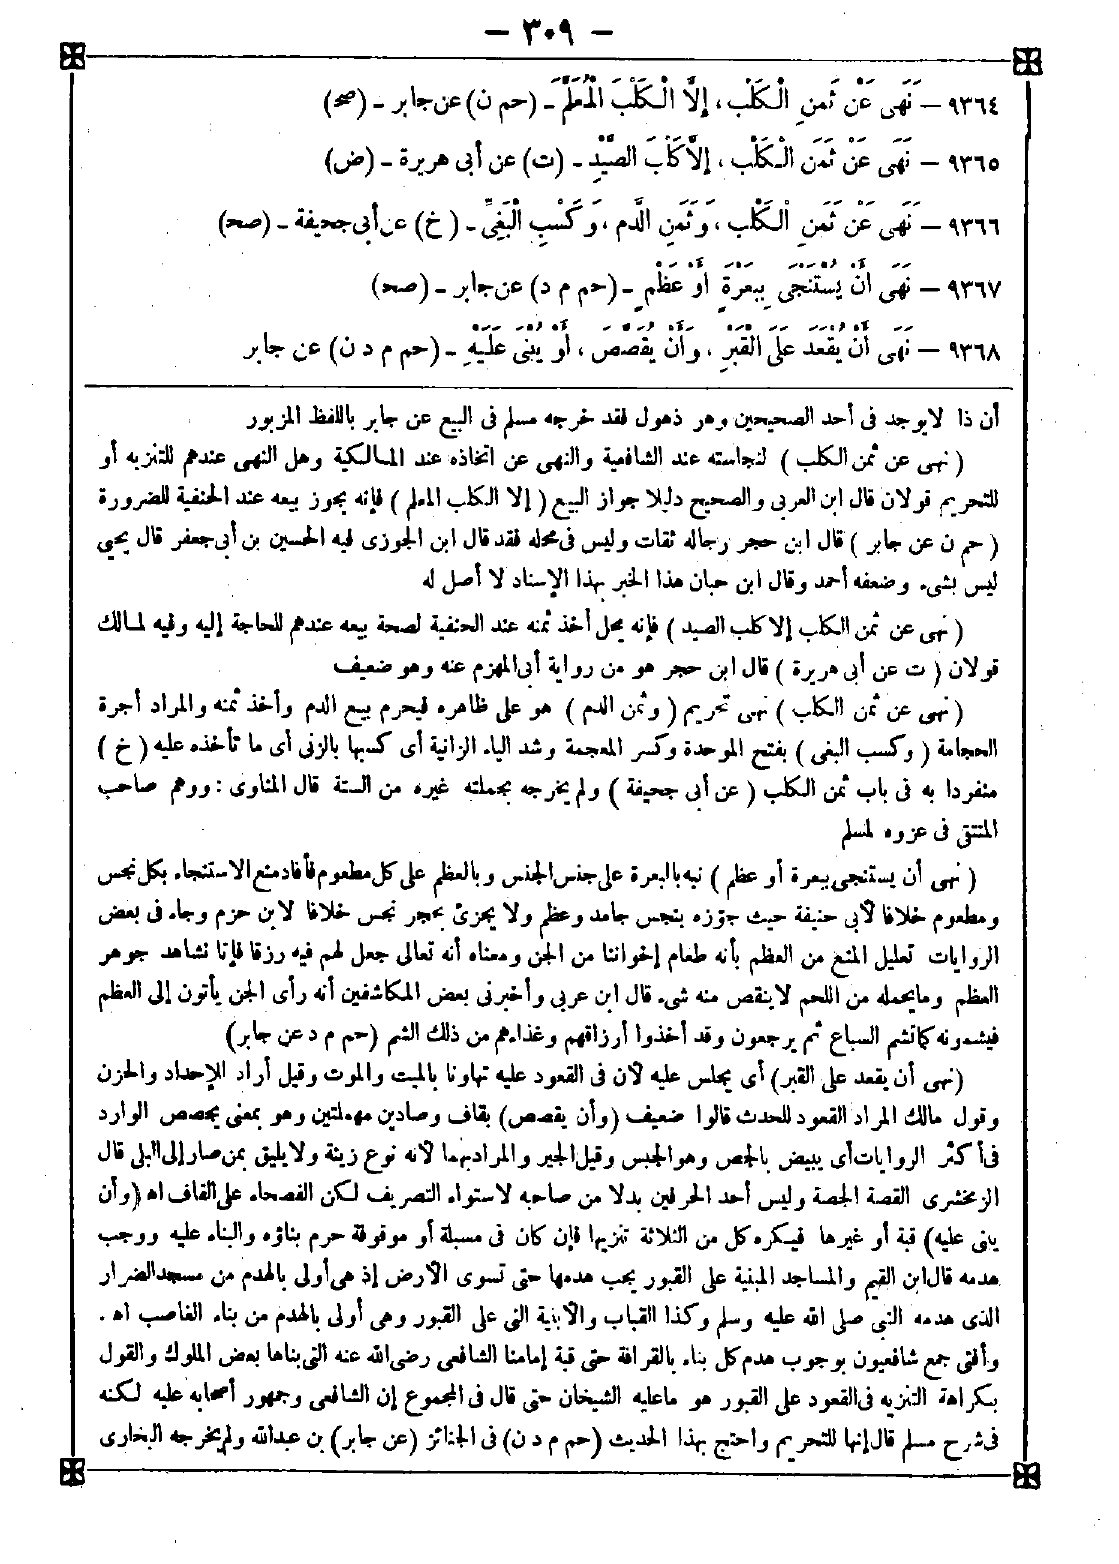 – ٣٠٩ –
٩٣٦٤ – نَهَى عَنْ ثَمَنِ الْكَلْبِ، إِلَّا الْكَلْبَ الْمُعَلَّمَ – (حم ن) عن جابر – (صح)
٩٣٦٥ – نَهَى عَنْ ثَمَنِ الْكَلْبِ، إِلَّا كَلْبَ الصَّيْدِ – (ت) عن أبى هريرة – (ض)
٩٣٦٦ – نَهَى عَنْ ثَمَنِ الْكَلْبِ، وَثَمَنِ الدَّمِ، وَكَسْبِ الْبَغِيِّ – (خ) عن أبى جحيفة – (صح)
٩٣٦٧ – نَهَى أَنْ يُسْتَنْجَى بِبَعْرَةٍ أَوْ عَظْمٍ – (حم م د) عن جابر – (صح)
٩٣٦٨ – نَهَى أَنْ يُقْعَدَ عَلَى الْقَبْرِ، وَأَنْ يُقَصَّصَ، أَوْ يُبْنَى عَلَيْهِ – (حم م د ن) عن جابر
أن ذا لايوجد فى أحد الصحيحين وهر ذهول فقد خرجه مسلم فى البيع عن جابر باللفظ المزبور
(نهى عن ثمن الكلب) لنجاسته عند الشافعية والنهى عن اتخاذه عند المالكية وهل النهى عندهم للتنزيه أو
للتحريم قولان قال ابن العربى والصحيح دليلا جواز البيع (إلا الكلب المعلم) فإنه يجوز بيعه عند الحنفية للضرورة
(حم ن عن جابر) قال ابن حجر رجاله ثقات وليس فى محله فقد قال ابن الجوزى فيه الحسين بن أبى جعفر قال يحيى
ليس بشىء وضعفه أحمد وقال ابن حبان هذا الخبر بهذا الإسناد لا أصل له
(نهى عن ثمن الكلب إلا كلب الصيد) فإنه يحل أخذ ثمنه عند الحنفية لصحة بيعه عندهم للحاجة إليه وفيه لمالك
قولان (ت عن أبى هريرة) قال ابن حجر هو من رواية أبى المهزم عنه وهو ضعيف
(نهى عن ثمن الكلب) نهى تحريم (وثمن الدم) هو على ظاهره فيحرم بيع الدم وأخذ ثمنه والمراد أجرة
الحجامة (وكسب البغى) بفتح الموحدة وكسر المعجمة وشد الياء الزانية أى كسبها بالزنى أى ما تأخذه عليه (خ)
منفردا به فى باب ثمن الكلب (عن أبى جحيفة) ولم يخرجه بجملته غيره من الستة قال المناوى: ووهم صاحب
المنتقى فى عزوه لمسلم
(نهى أن يستنجى ببعرة أو عظم) نبه بالبعرة على جنس الجنس وبالعظم على كل مطعوم فأفاد منع الاستنجاء بكل نجس
ومطعوم خلافا لأبى حنيفة حيث جوّزه بنجس جامد وعظم ولا يجزئ بحجر نجس خلافا لابن حزم وجاء فى بعض
الروايات تعليل المنع من العظم بأنه طعام إخواننا من الجن ومعناه أنه تعالى جعل لهم فيه رزقا فإنا نشاهد جوهر
العظم ومايحمله من اللحم لاينقص منه شىء قال ابن عربى وأخبرنى بعض المكاشفين أنه رأى الجن يأتون إلى العظم
فيشمونه كما تشم السباع ثم يرجعون وقد أخذوا أرزاقهم وغذاءهم من ذلك الشم (حم م د عن جابر)
(نهى أن يقعد على القبر) أى يجلس عليه لأن فى القعود عليه تهاونا بالميت والموت وقيل أراد الإحداد والحزن
وقول مالك المراد القعود للحدث قالوا ضعيف (وأن يقصص) بقاف وصادين مهملتين وهو بمعنى يجصص الوارد
فى أكثر الروايات أى يبيض بالجص وهو الجبس وقيل الجير والمراد بهما لأنه نوع زينة ولا يليق بمن صار إلى البلى قال
الزمخشرى القصة الجصة وليس أحد الحرفين بدلا من صاحبه لاستواء التصريف لكن الفصحاء على القاف اه (وأن
يبنى عليه) قبة أو غيرها فيكره كل من الثلاثة تنزيها فإن كان فى مسبلة أو موقوفة حرم بناؤه والبناء عليه ووجب
هدمه قال ابن القيم والمساجد المبنية على القبور يجب هدمها حتى تسوى الأرض إذ هى أولى بالهدم من مسجد الضرار
الذى هدمه النبى صلى الله عليه وسلم وكذا القباب والأبنية التى على القبور وهى أولى بالهدم من بناء الغاصب اه.
وأفتى جمع شافعيون بوجوب هدم كل بناء بالقرافة حتى قبة إمامنا الشافعى رضى الله عنه التى بناها بعض الملوك والقول
بكراهة التنزيه فى القعود على القبور هو ماعليه الشيخان حتى قال فى المجموع إن الشافعى وجمهور أصحابه عليه لكنه
فى شرح مسلم قال إنها للتحريم واحتج بهذا الحديث (حم م د ن) فى الجنائز (عن جابر) بن عبدالله ولم يخرجه البخارى